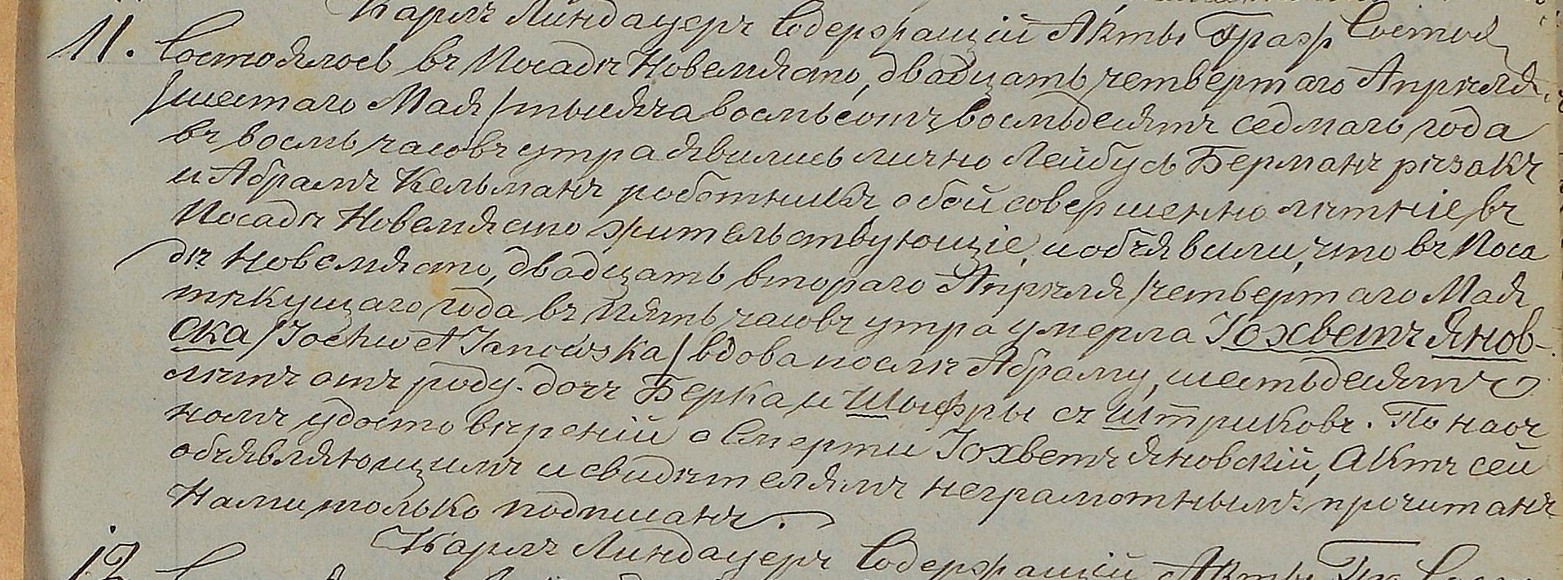 Карлъ Линдауеръ Содержащій Акты Гразд Состоя
11. Состоялось въ Посадѣ Новемясто, двадцать четвертаго Апрѣля
/шестаго Мая/ тысяча восмьсотъ восмьдесятъ седмаго года
въ восмь часовъ утра явились лично Лейбусь Берманъ рѣзакъ
и Абрамъ Кельманъ роботникъ обой совершенно лѣтніе, въ
Посадѣ Новемясто жительствующіе, и объявили, что въ Поса
дѣ Новемясто, двадцать втораго Апрѣля /четвертаго Мая
тѣкущаго года въ пять часовъ утра умерла Іохветъ Янов-
ска /Jochwet Janowska/ вдова послѣ Абраму, шестьдесятъ
лѣтъ отъ роду. дочь Берка и Шыфры съ Штриковъ. По наоч
номъ удостовѣреній о Смерти Іохветъ Яновскій, Актъ сей
объявляющимъ и свидѣтелямъ неграмотнымъ, прочитанъ
Нами только подписанъ.
Карлъ Линдауеръ Содержащій Акты Гр Сост
12.